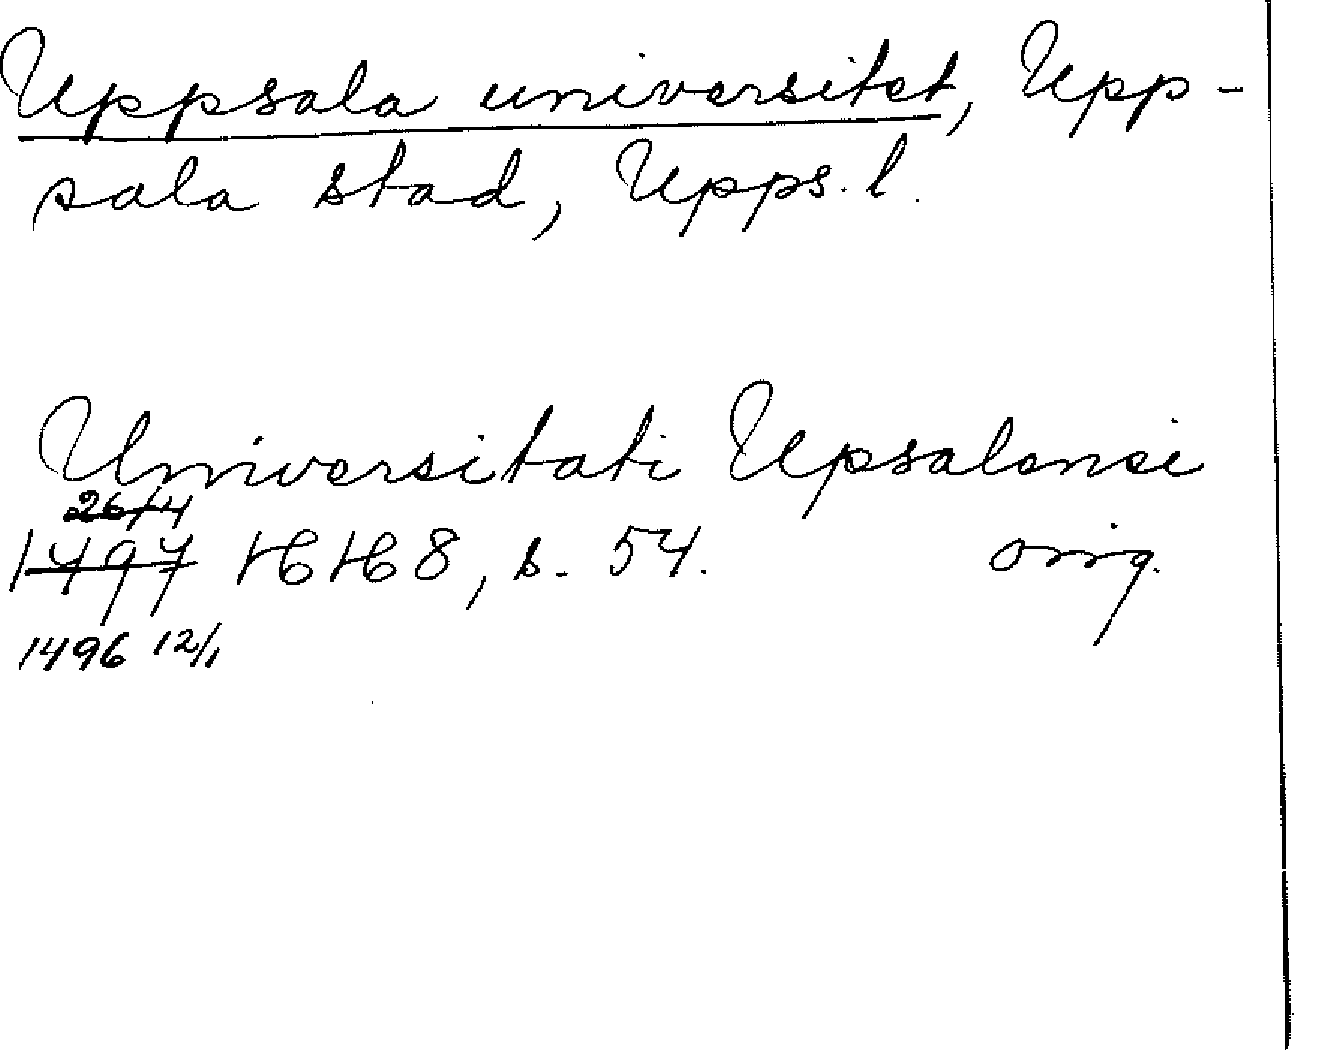 Uppsala universitet, Upp-
sala stad, Upps. l.
Universitati Upsalensi
26/4
1497 HH 8, s. 54. orig.
1496 12/1